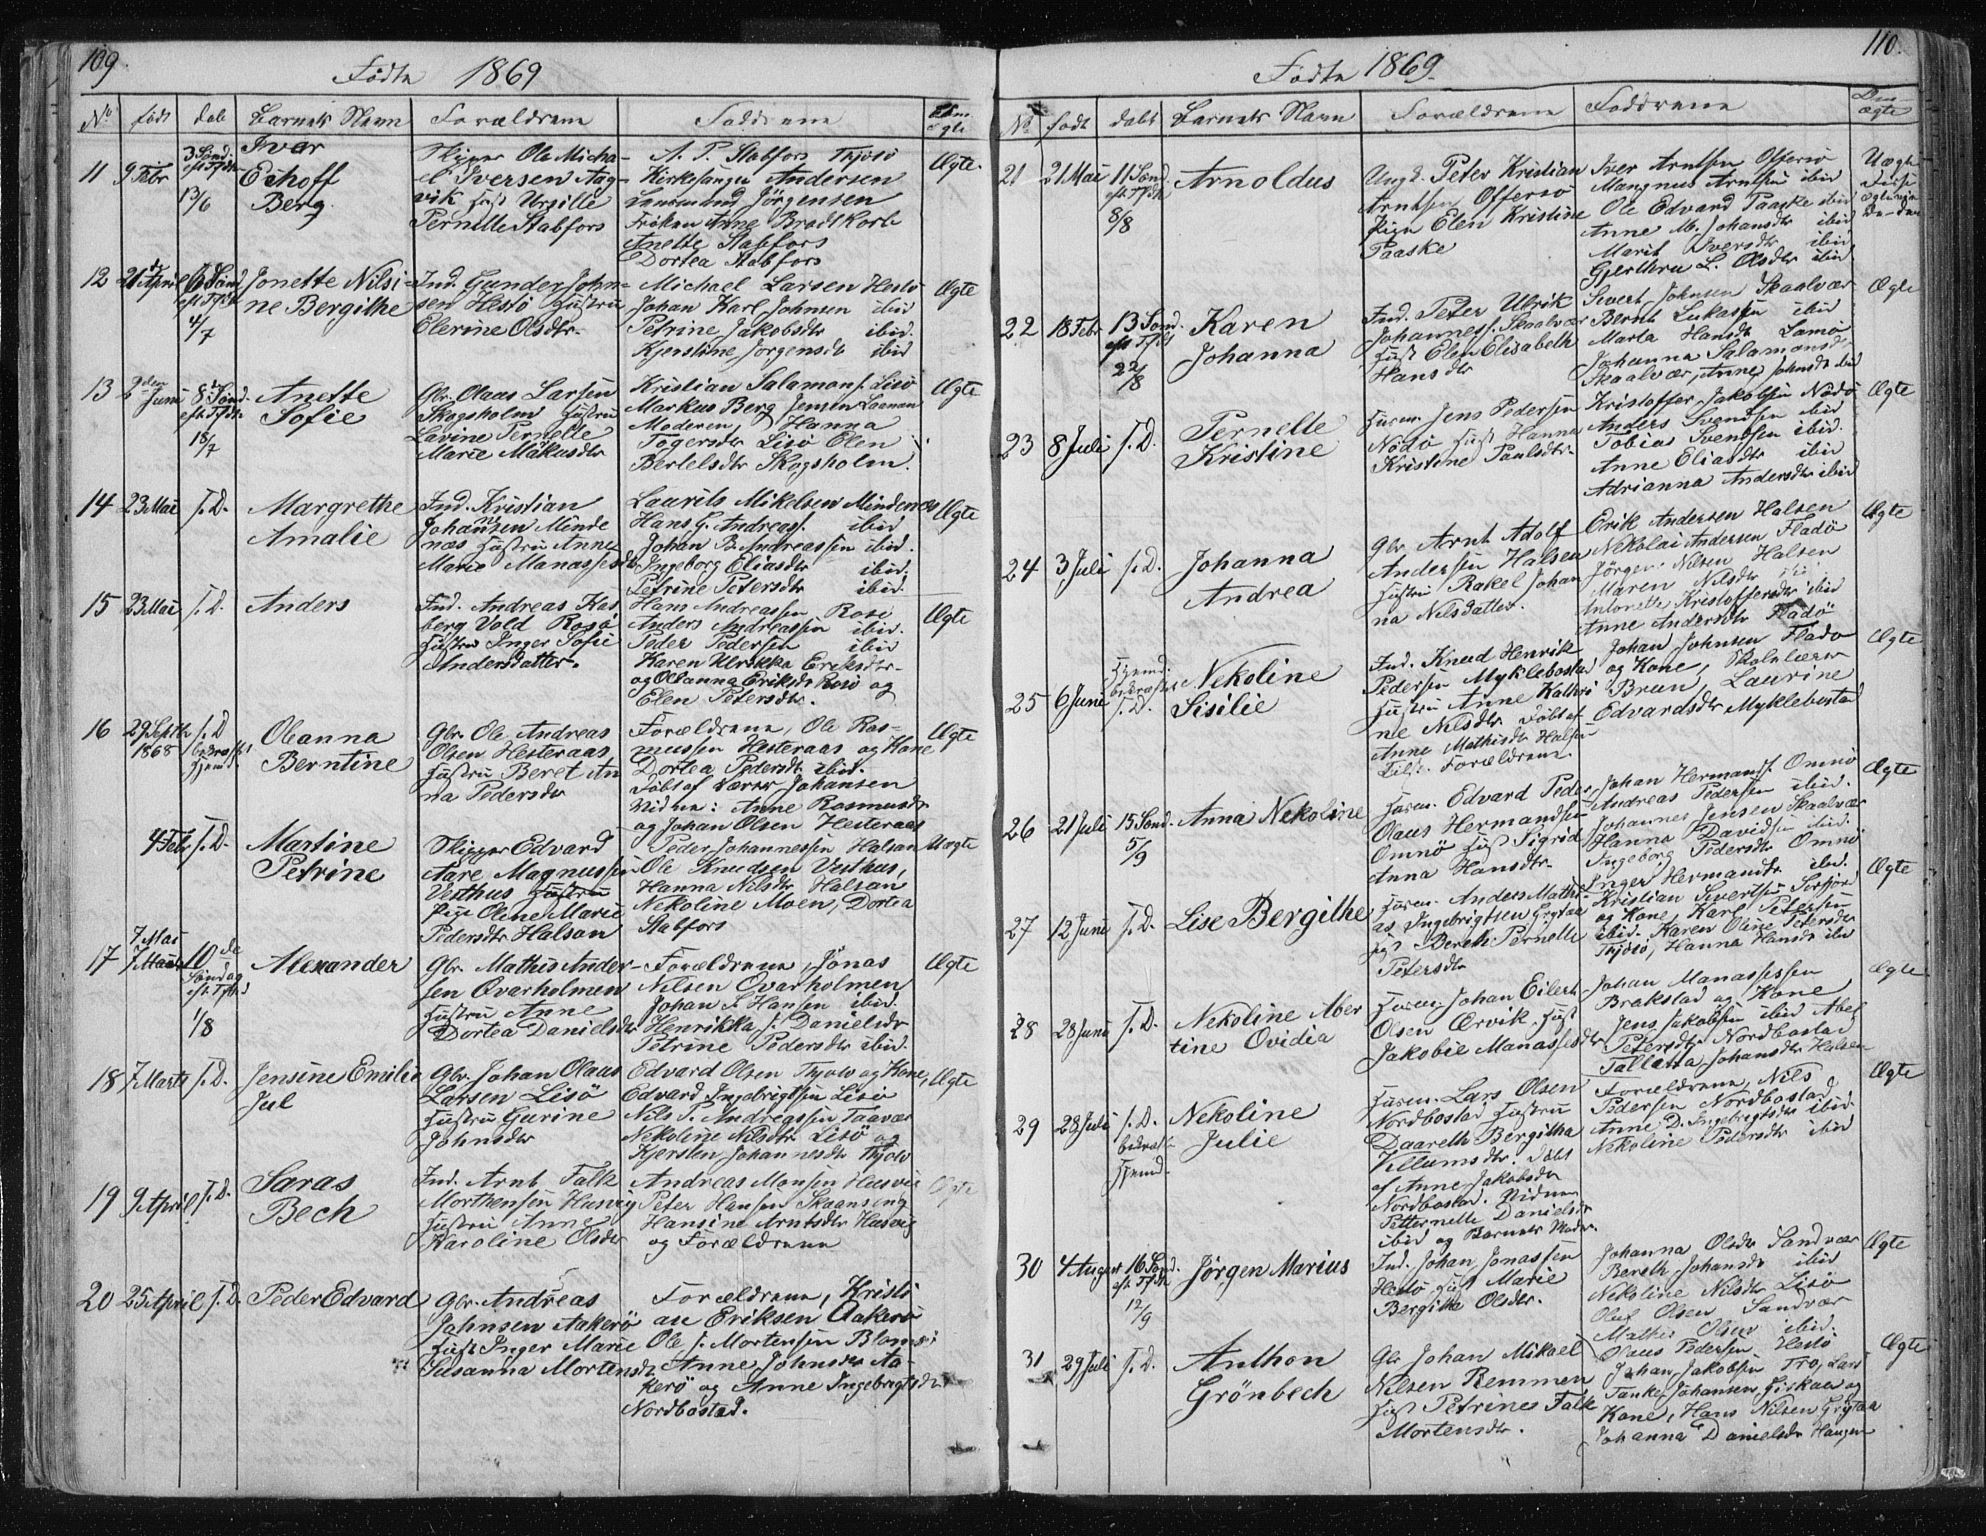 109.
Födte 1869
No födt dab Barnets Navn Forældrene Faddrene Om Ægte
11 9 Febr 3 Sönd. eft Tfdt 13/6 Ivar Eichoff Berg. Skipper Ole Michael Iversen Aagvik Hust Urgille Pernelle Stabfors
A. P. Stabfors Thjosö
Kirkesanger Andersen
Landmand Jörgensen
Fröken Anne Bradtkorb
Anette Stabfors
Dortea Stabfors
Ægte.
12 21 April 6 Sönd eft Tfdt 4/7 Jonette Nilsine Bergithe Ind. Gunder Johnsen Hestö Hustru Elerine Olsdtr.
Michael Larsen Hestö
Johan Karl Johnsen ibid
Petrine Jakobsdtr ibid.
Kjerstine Jörgensdt ibid
Ægte
13 2den Juni 8 Sönd. eft Tfdt 18/7 Anette Sofie Gbr. Olaus Larsen Skogsholm Hustru Lavine Pernelle Marie Makusdtr
Kristian Salamons. Lisö
Markus Berg Jensen
Moderen, Hanna
Togersdtr Lisö Elen
Bertelsdtr Skogsholm.
Ægte
14 23 Mai s. D. Margrethe Amalie Ind. Kristian Johansen Mindenæs Hustru Anne Marie Manassesdtr
Laurits Mikelsen Mindenæs
Hans G. Andreass. ibid
Johan B. Andreassen ibid.
Ingeborg Eliasdtr ibid.
Petrine Petersdtr ibid.
Ægte
15 23 Mai s. D. Anders Ind. Andreas Kasberg Vold Rosö Hustru Inger Sofie Andersdatter.
Hans Andreassen Rosö
Anders Andreassen ibid.
Peder Pedersen ibid
Karen Ulrikka Eriksdtr
og Oleanna Eriksdt Rosö og
Elen Petersdtr.
Ægte
16 29 Septbr 1868 s. D bekræft Hjemd. Oleanna Berntine Gbr. Ole Andreas Olsen Hesteraas Hustru Beret Anna Pedersdtr
Forældrene, Ole Rasmussen Hesteraas og Kone
Dortea Pedersdt ibid.
Döbt af Lærer Johansen
Vidner: Anne Rasmusdt
og Johan Olsen Hesteraas
Ægte
4 Febr s. D. Martine Petrine Skipper Edvard Aare Magnussen Vesthus Hustru Pige Olene Marie Pedersdtr Halsan
Peder Johannessen Halsan
Ole Knudsen Vesthus,
Hanna Nilsdtr Halsan
Nekoline Moen, Dortea
Stabfors
Uægte
17 7 Mai 10de Söndag eft Tfd 1/8 Alexander Gbr. Mathis Andersen Qvarholmen Hustru Anne Dortea Danielsdtr
Forældrene, Jonas
Nilsen Qvarholmen
Johan S. Hansen ibid.
Henrikka s. Danielsdtr
Petrine Pedersdtr ibid.
Ægte
18 7 Marts s. D. Jensine Emilie Jul Gbr. Johan Olaus Larsen Lisö Hustru Gurine Johnsdtr
Edvard Olsen Thjotö og Kone,
Edvard Ingebrigtsen Lisö
Nils P. Andreassen Traavær
Nekoline Nilsdtr Lisö og
Kjersten Johannesdtr Thjotö
Ægte
19 9 April s. D. Saras Bech Ind. Arnt Falk Morthensen Husvig Hustru Anne Karoline Olsdtr
Andreas Monsen Husvig
Peter Hansen Skaansing
Hansine Arntsdtr Husvig
og Forældrene
Ægte
20 25 April s. D. Peder Edvard Gbr. Andreas Johnsen Aakerö Hust Inger Marie Susanna Mortensdt
Forældrene, Kristian Eriksen Aakerö
Ole s. Mortensen Bloms:
Anne Johnsdtr Aakerö og Anne Ingebrigtsdtr
Nordbostad.
110.
Födte 1869.
No födt dabt Barnets Navn Forældrene Faddrene Om ægte
21 21 Mai 11 Sönd. eft Tfdt 8/8 Arnoldus Ungk. Peter Kristian Arntsen Offersö Pige Elen Kristine Paaske
Iver Arntsen Offersö
Mangnus Arntsen ibid
Ole Edvard Paaske ibid
Anne M. Johansdtr ibid
Marit Iversdtr ibid.
Gjerthru L. Olsdtr ibid.
Uægte
22 18 Febr 13 Sönd. eft Tfdt 22/8 Karen Johanna Ind. Peter Ulrik Johanness. Skaalvær Hust Elen Elisabeth Hansdtr
Sivert Johnsen Skaalvær
Bernt Lukassen ibid
Marta Hansdt Lamö
Johanna Salamonsdt
Skaalvær, Anne Johnsdt ibid
Ægte
23 8 Juli s. D. Pernelle Kristine Husm. Jens Pedersen Nödö Hust Hanna Kristine Paulsdtr.
Kristoffer Jakobsen Nödö
Anders Svendsen ibid
Tobias Svendsen ibid.
Anne Eliasdtr ibid
Adrianna Andersdtr ibid
Ægte
24 3 Juli s. D. Johanna Andrea Gbr Arnt Adolf Andersen Halsen Hustru Rakel Johanna Nilsdatter.
Erik Andersen Halsen
Nekolai Andersen Fladö
Jörgen Nilsen Halsen
Maren Nilsdtr ibid
Antonette Kristoffersdtr ibid
Anne Andersdtr Fladö
Ægte
25 6 Juni Hjemd. bekræftet s. D. Nekoline Sisilie Ind. Knud Henrik Pedersen Myklebostad Hustru Anne Kathrine Nilsdtr Döbt af Anne Mathisdt Halsen Tilst. Forældrene.
Johan Johnsen Fladö
og Kone, Skolelærer
Brun, Laurine
Edvardsdtr Myklebostad
Ægte
26 21 Juli 15 Sönd. 5/9 Anna Nekoline Husm. Edvard Peder Olaus Hermandsen Omnö Hust Sigrid Anna Hansdtr.
Johan Hermans. Omnö
Andreas Pedersen ibid.
Johannes Jensen Skaalvær
Hanna Davidsen ibid.
Ingeborg Pedersdtr Omnö
Inger Hermandtr ibid.
Ægte
27 12 Juni s. D. Lise Bergithe Husm. Anders Mathias Ingebrigtsen Grytaa Hust Bereth Pernelle Petersdtr
Kristian Sivertsen Sörfjor
og Kone, Karl Petersen
ibid. Karen Oline Petersdtr
Thjosö, Hanna Hansdt ibid
Ægte
28 28 Juni s. D. Nekoline Abertine Ovidia Husm. Johan Eilert Olsen Ørvik. Hust Jakobie Manassesdtr
Johan Manassesen
Brakstad og Kone
Jens Jakobsen ibid Abel
Petersdtr Nordbostad
Tallotta Johansdtr Halsen
Ægte
29 28 Juli s. D. bekræft. Hjemd. Nekoline Julie Husm. Lars Olsen Nordbostad Hustru Daareth Bergitha Villumsdtr. Döbt af Anne Jakobsdtr Nordbostad. Vidner Petternelle Danielsdtr ibid og Barnets Moder.
Forældrene, Nils
Pedersen Nordbostad
Anne D. Ingebrigtsdtr ibid.
Nekoline Pedersdtr ibid
Ægte
30 4 August 16 Sönd. eft Tfdt 12/9 Jörgen Marius Ind. Johan Jonassen Hestö Hust Marie Bergitha Olsdtr.
Johanna Olsdtr Sandvær
Bereth Johansdt ibid
Nekoline Nilsdtr Lisö
Oluf Olsen Sandvær
Mathis Olsen ibid.
Olaus Pedersen Hestö
Ægte
31 29 Juli s. D. Anthon Grönbech Gbr Johan Mikael Nilsen Remmen Hust Petrines Falk Mortensdtr.
Johan Jakobsen Tro, Lars
Tanke Johansen Giskaa og
Kone, Hans Nilsen Grytaa
Johanna Danielsdtr Haugen
Ægte